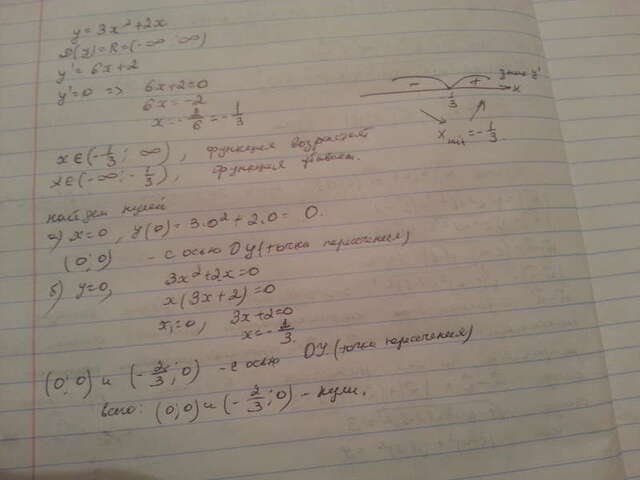 y = 3x² + 2x
D(y) = R = (-∞; ∞)
y' = 6x + 2
y' = 0 => 6x + 2 = 0
6x = -2
x = -2/6 = -1/3
- + знак y'
-1/3 x
x min = -1/3.
x ∈ (-1/3; ∞), функция возрастает
x ∈ (-∞; -1/3), функция убывает.
найдем нулей
а) x = 0, y(0) = 3·0² + 2·0 = 0.
(0; 0) - с осью OY (точка пересечения)
б) y = 0, 3x² + 2x = 0
x(3x + 2) = 0
x₁ = 0, 3x + 2 = 0
x = -2/3.
(0; 0) и (-2/3; 0) - с осью OY. (точка пересечения)
всего: (0; 0) и (-2/3; 0) - нули.